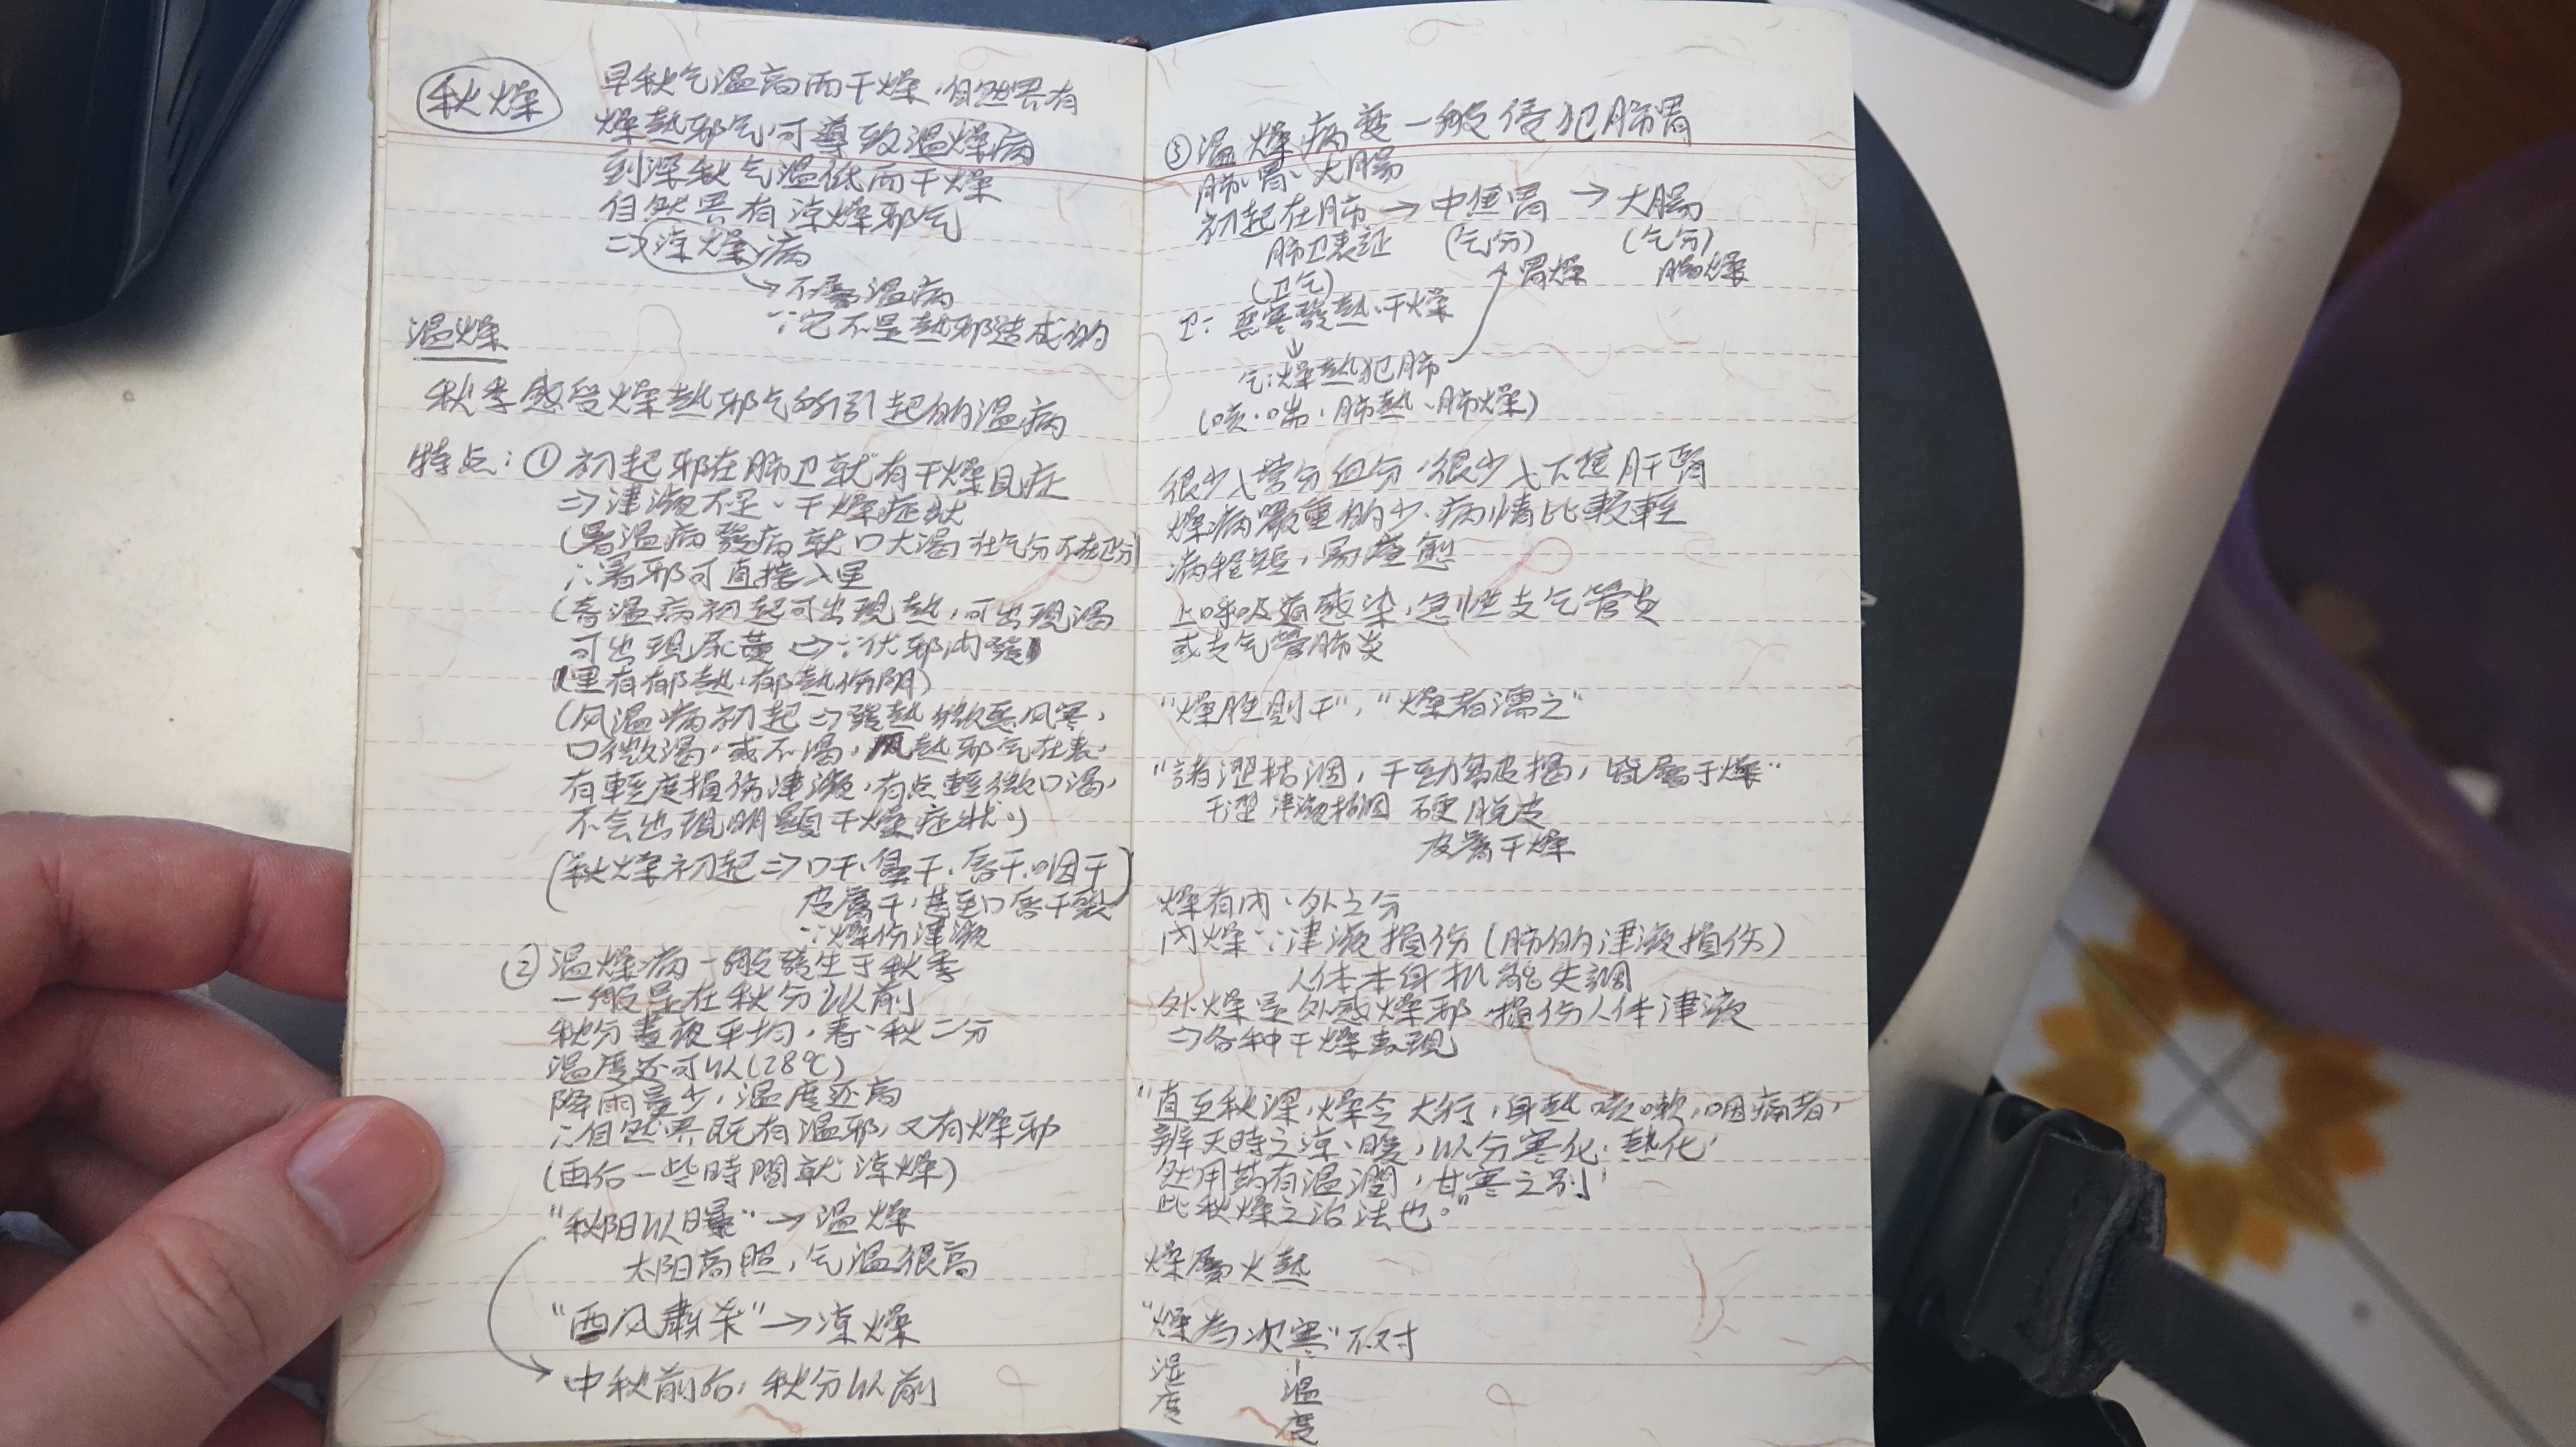 秋燥
早秋气温高而干燥,自然界有
燥熱邪气,可導致温燥病
到深秋气温低而干燥
自然界有凉燥邪气
凉燥病
→不屬温病
∵它不是熱邪造成的
温燥
秋季感受燥熱邪气所引起的温病
特点:① 初起邪在肺卫就有干燥見症
⇒津液不足、干燥症狀
(暑温病發病就口大渴 在气分不在卫分)
∴暑邪可直接入里
(春温病初起可出現熱,可出現渴
可出現尿黄⇒∵伏邪内發
里有郁熱,郁熱伤阴)
(风温病初起⇒發熱微惡风寒,
口微渴,或不渴,风熱邪气在表,
有輕度損伤津液,有点輕微口渴,
不会出現明顯干燥症狀。)
(秋燥初起⇒口干、鼻干、唇干、咽干
皮膚干,甚至口唇干裂)
∵燥伤津液
② 温燥病一般發生于秋季
一般是在秋分以前
秋分晝夜平均,春、秋二分
温度还可以(28℃)
降雨量少,温度还高
∴自然界既有温邪,又有燥邪
(再后一些時間就凉燥)
"秋阳以曝"→温燥
太阳高照,气温很高
"西风肅杀"→凉燥
中秋前后,秋分以前
③ 温燥病變一般侵犯肺胃
肺、胃、大腸
初起在肺→中焦胃→大腸
肺卫表証 (气分) (气分)
(卫气) 胃燥 腸燥
卫:惡寒發熱、干燥
↓
气:燥熱犯肺
(咳、喘、肺熱、肺燥)
很少入营分血分,很少入下焦肝腎
燥病嚴重的少,病情比較輕
病程短,易痊愈
上呼吸道感染,急性支气管炎
或支气管肺炎
"燥胜則干","燥者濡之"
"諸澀枯涸,干勁皴皮揭,皆屬于燥"
干澀 津液枯涸 硬 脱皮
皮膚干燥
燥有内、外之分
内燥∵津液損伤(肺的津液損伤)
人体本身机能失調
外燥是外感燥邪,損伤人体津液
⇒各种干燥表現
"直至秋深,燥令大行,身熱咳嗽,咽痛者,
辨天時之凉、暖,以分寒化、熱化,
然用药有温潤,甘寒之别,
此秋燥之治法也。"
燥屬火熱
"燥為次寒"不对
湿度
温度